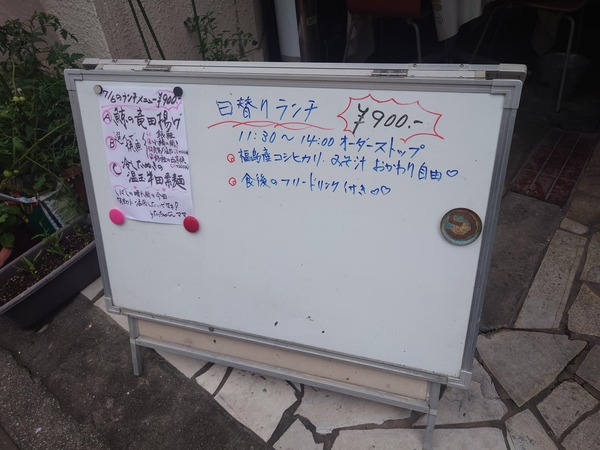 7/6のランチメニュー¥900-
Ⓐ 鯨の竜田揚げ
Ⓑ
Ⓒ 冷したぬきの
温玉半田素麺
日替りランチ ¥900.-
11:30〜14:00 オーダーストップ
福島産コシヒカリ・みそ汁 おかわり自由♡
食後のフリードリンク付き♡♡